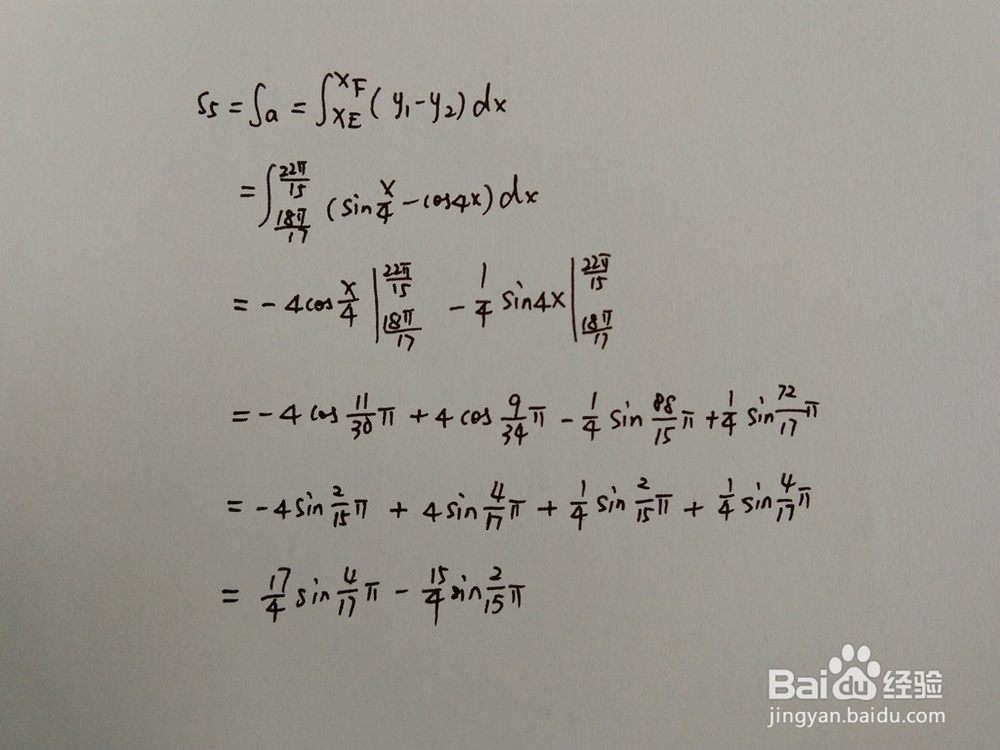 S₅ = ∫a = ∫_{X_E}^{X_F} (y₁-y₂) dx
= ∫_{18π/17}^{22π/15} (sin x/4 - cos4x) dx
= -4cos x/4 |_{18π/17}^{22π/15} - 1/4 sin4x |_{18π/17}^{22π/15}
= -4 cos 11/30 π + 4 cos 9/34 π - 1/4 sin 88/15 π + 1/4 sin 72/17 π
= -4sin 2/15 π + 4sin 4/17 π + 1/4 sin 2/15 π + 1/4 sin 4/17 π
= 17/4 sin 4/17 π - 15/4 sin 2/15 π
Baidu 经验
jingyan.baidu.com